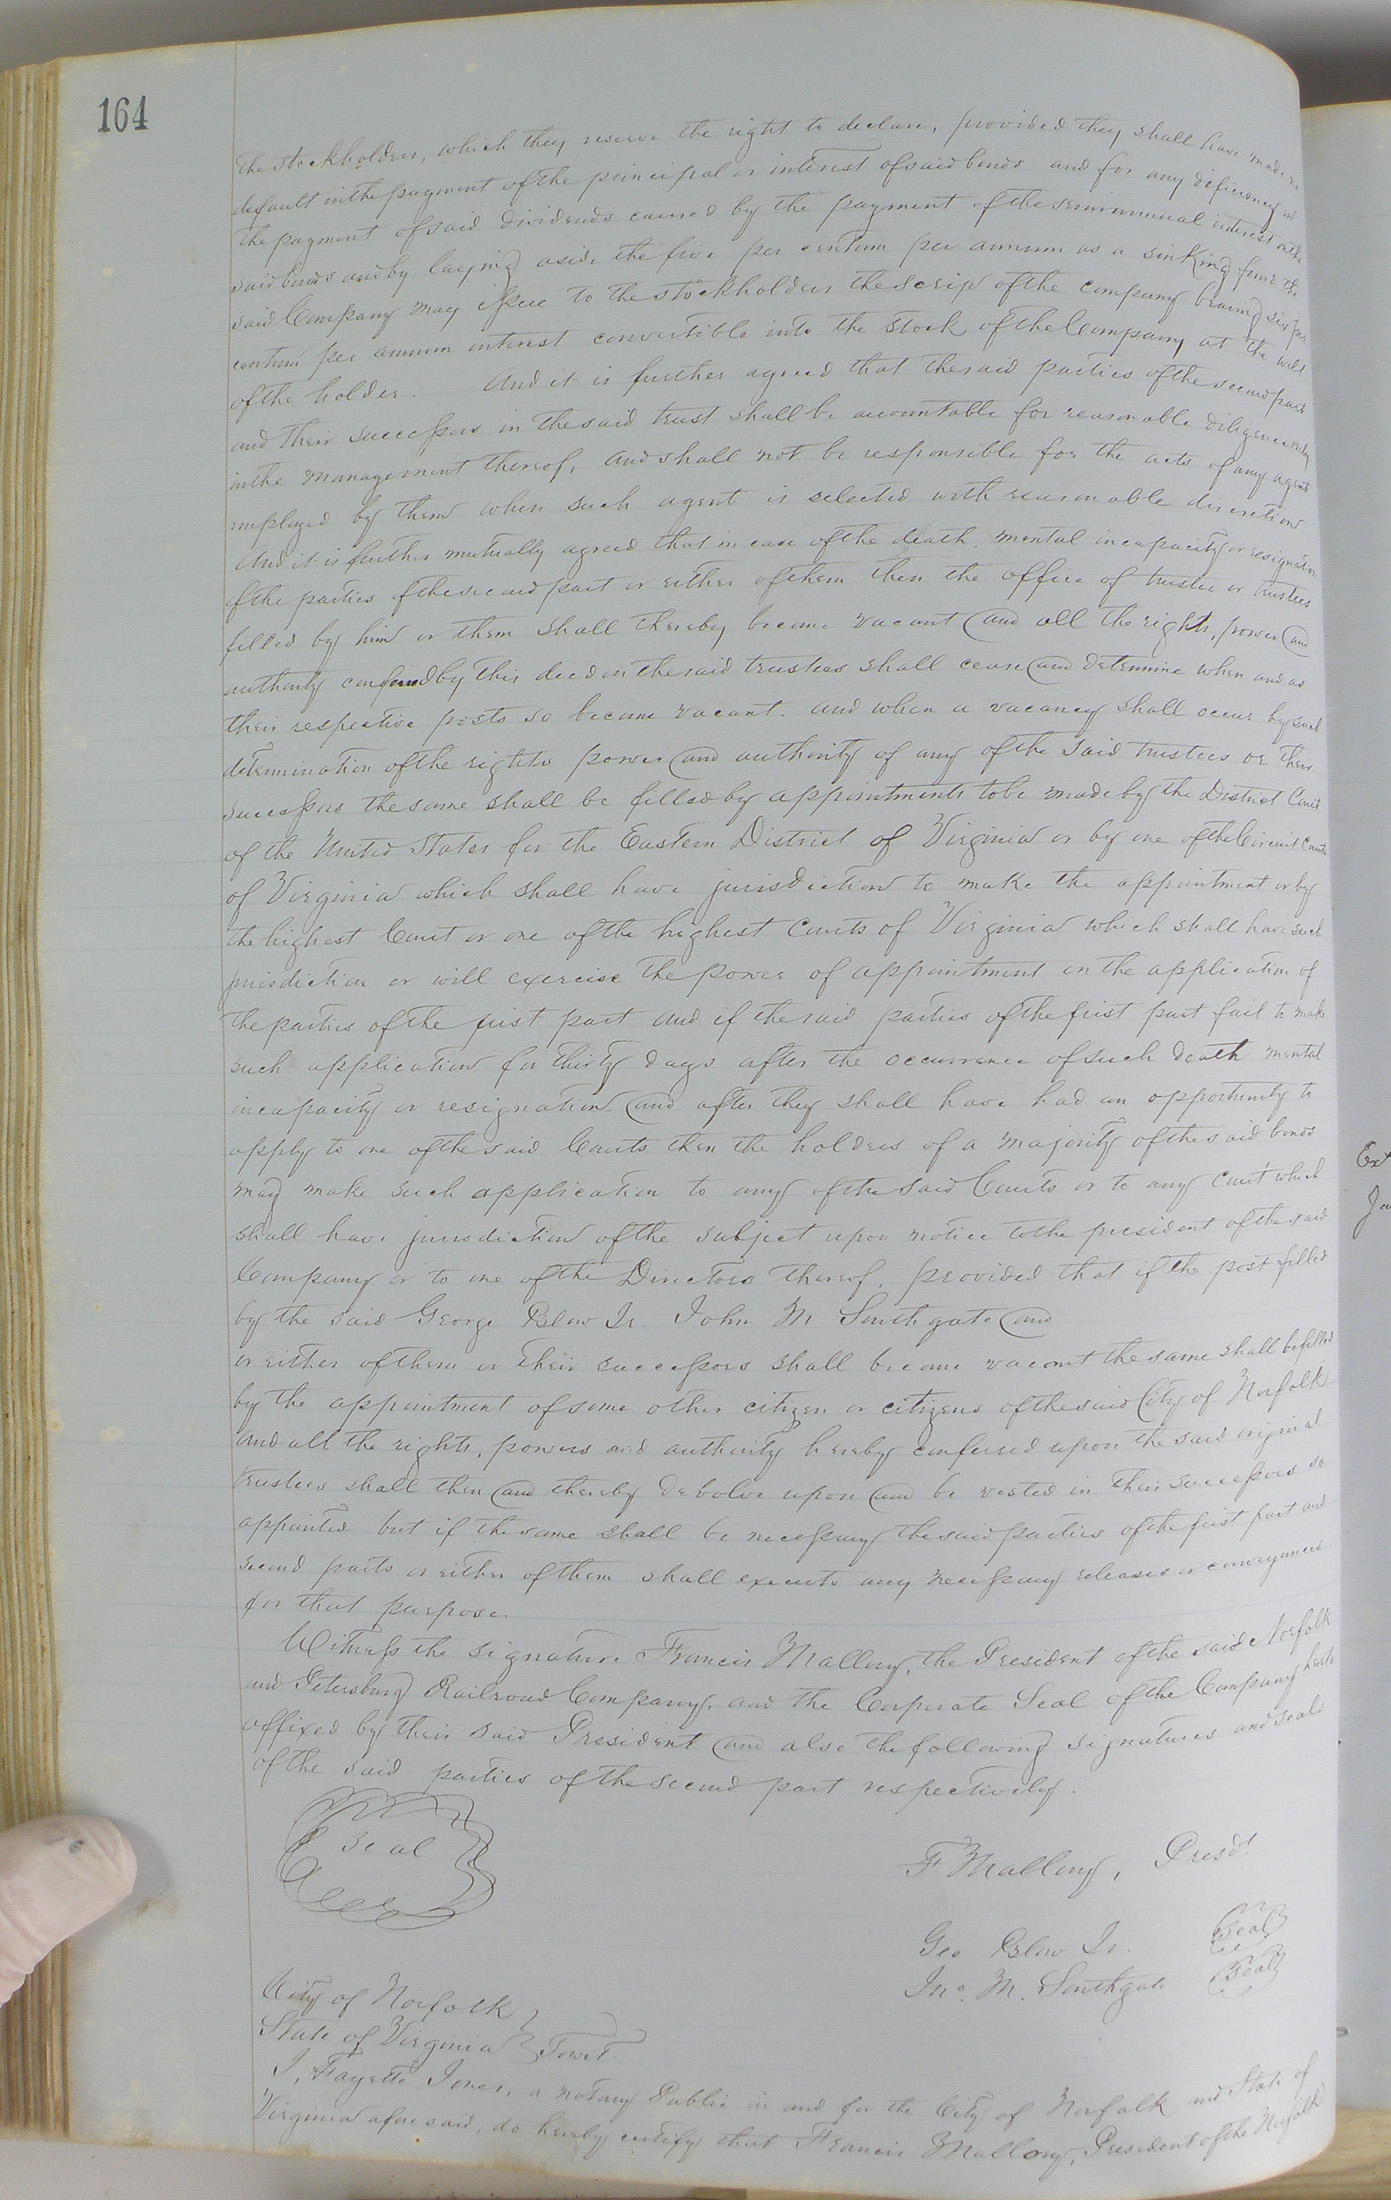 164
the stockholders, which they reserve the right to declare, provided they shall have made no
default in the payment of the principal or interest of said bonds and for any deficiency in
the payment of said dividends caused by the payment of the semiannual interest on the
said bonds and by laying aside the five per centum per annum as a sinking fund the
said Company may issue to the stockholders the scrip of the company bearing six per
centum per annum interest convertible into the stock of the Company at the will
of the holder. And it is further agreed that the said parties of the second part
and their successors in the said trust shall be accountable for reasonable diligence only
in the management thereof, and shall not be responsible for the acts of any agent
employed by them when such agent is selected with reasonable discretion
And it is further mutually agreed that in case of the death, mental incapacity or resignation
of the parties of the second part or either of them then the office of trustee or trustees
filled by him or them shall thereby become vacant and all the rights, power and
authority conferred by this deed on the said trustees shall cease and determine when and as
their respective posts so become vacant. and when a vacancy shall occur by such
determination of the rights power and authority of any of the said trustees or their
successors the same shall be filled by appointments to be made by the District Court
of the United States for the Eastern District of Virginia or by one of the Circuit Courts
of Virginia which shall have jurisdiction to make the appointment or by
the highest Court or one of the highest Courts of Virginia which shall have such
jurisdiction or will exercise the power of appointment on the application of
the parties of the first part and if the said parties of the first part fail to make
such application for thirty days after the occurrence of such death mental
incapacity or resignation and after they shall have had an opportunity to
apply to one of the said Courts then the holders of a majority of the said bonds
may make such application to any of the said Courts or to any Court which
shall have jurisdiction of the subject upon notice to the president of the said
Company or to one of the Directors thereof. provided that if the post filled
by the said George Blow Jr. John M Southgate and
or either of them or their successors shall become vacant the same shall be filled
by the appointment of some other citizen or citizens of the said City of Norfolk
and all the rights, powers and authority hereby conferred upon the said original
trustees shall then and thereby devolve upon and be vested in their successors so
appointed but if the same shall be necessary the said parties of the first part and
second parts or either of them shall execute any necessary releases or conveyances
for that purpose.
Witness the signature Francis Mallory, the President of the said Norfolk
and Petersburg Railroad Company, and the Corporate Seal of the Company hereto
affixed by their said President and also the following signatures and seals
of the said parties of the second part respectively.
Seal
F. Mallory, Presdt
Geo Blow Jr. Seal
Jno. M. Southgate Seal
City of Norfolk
State of Virginia Towit.
I, Fayette Jones, a notary Public in and for the City of Norfolk and State of
Virginia aforesaid, do hereby certify that Francis Mallory, President of the Norfolk